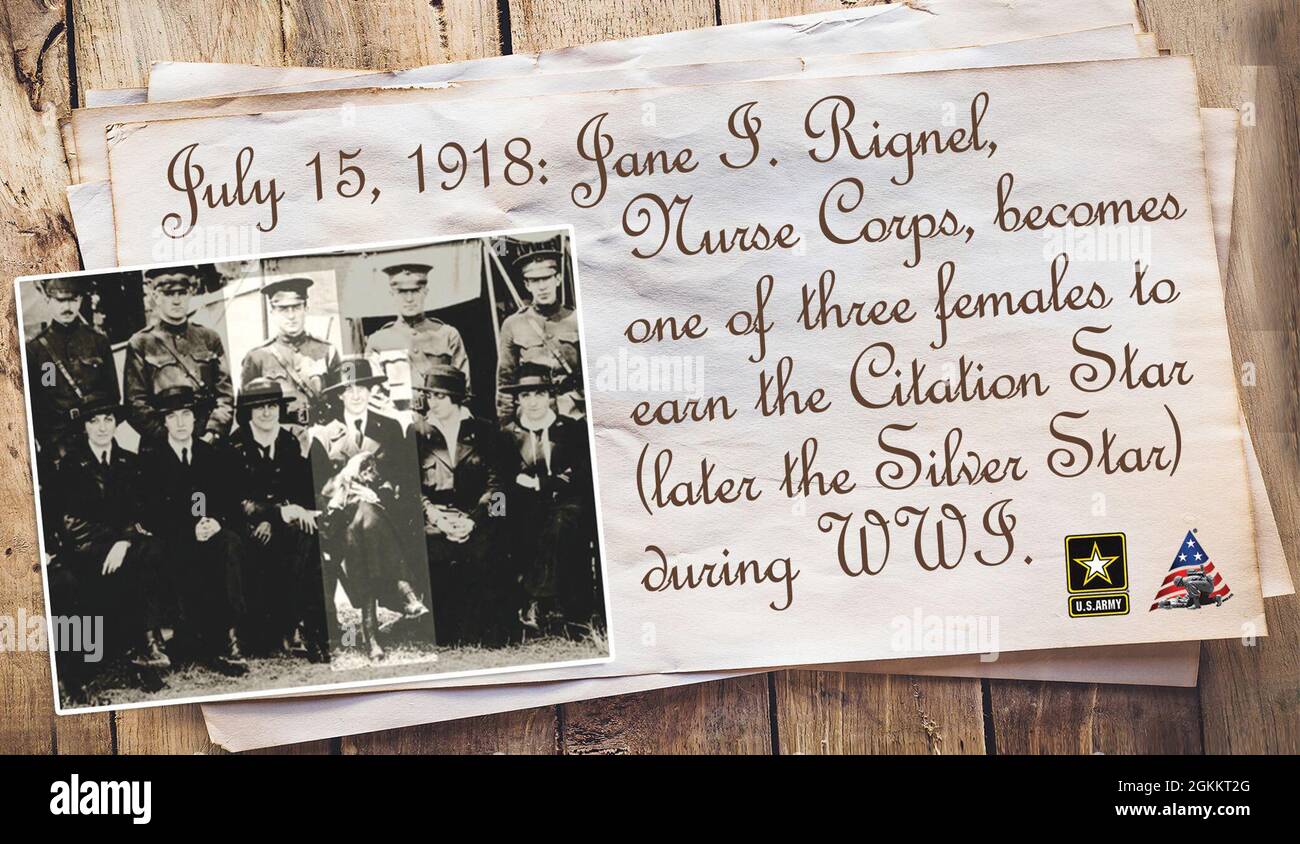 July 15, 1918: Jane I. Rignel,
Nurse Corps, becomes
one of three females to
earn the Citation Star
(later the Silver Star)
during WWI.
U.S.ARMY
alamy
Image ID: 2GKKT2G
www.alamy.com